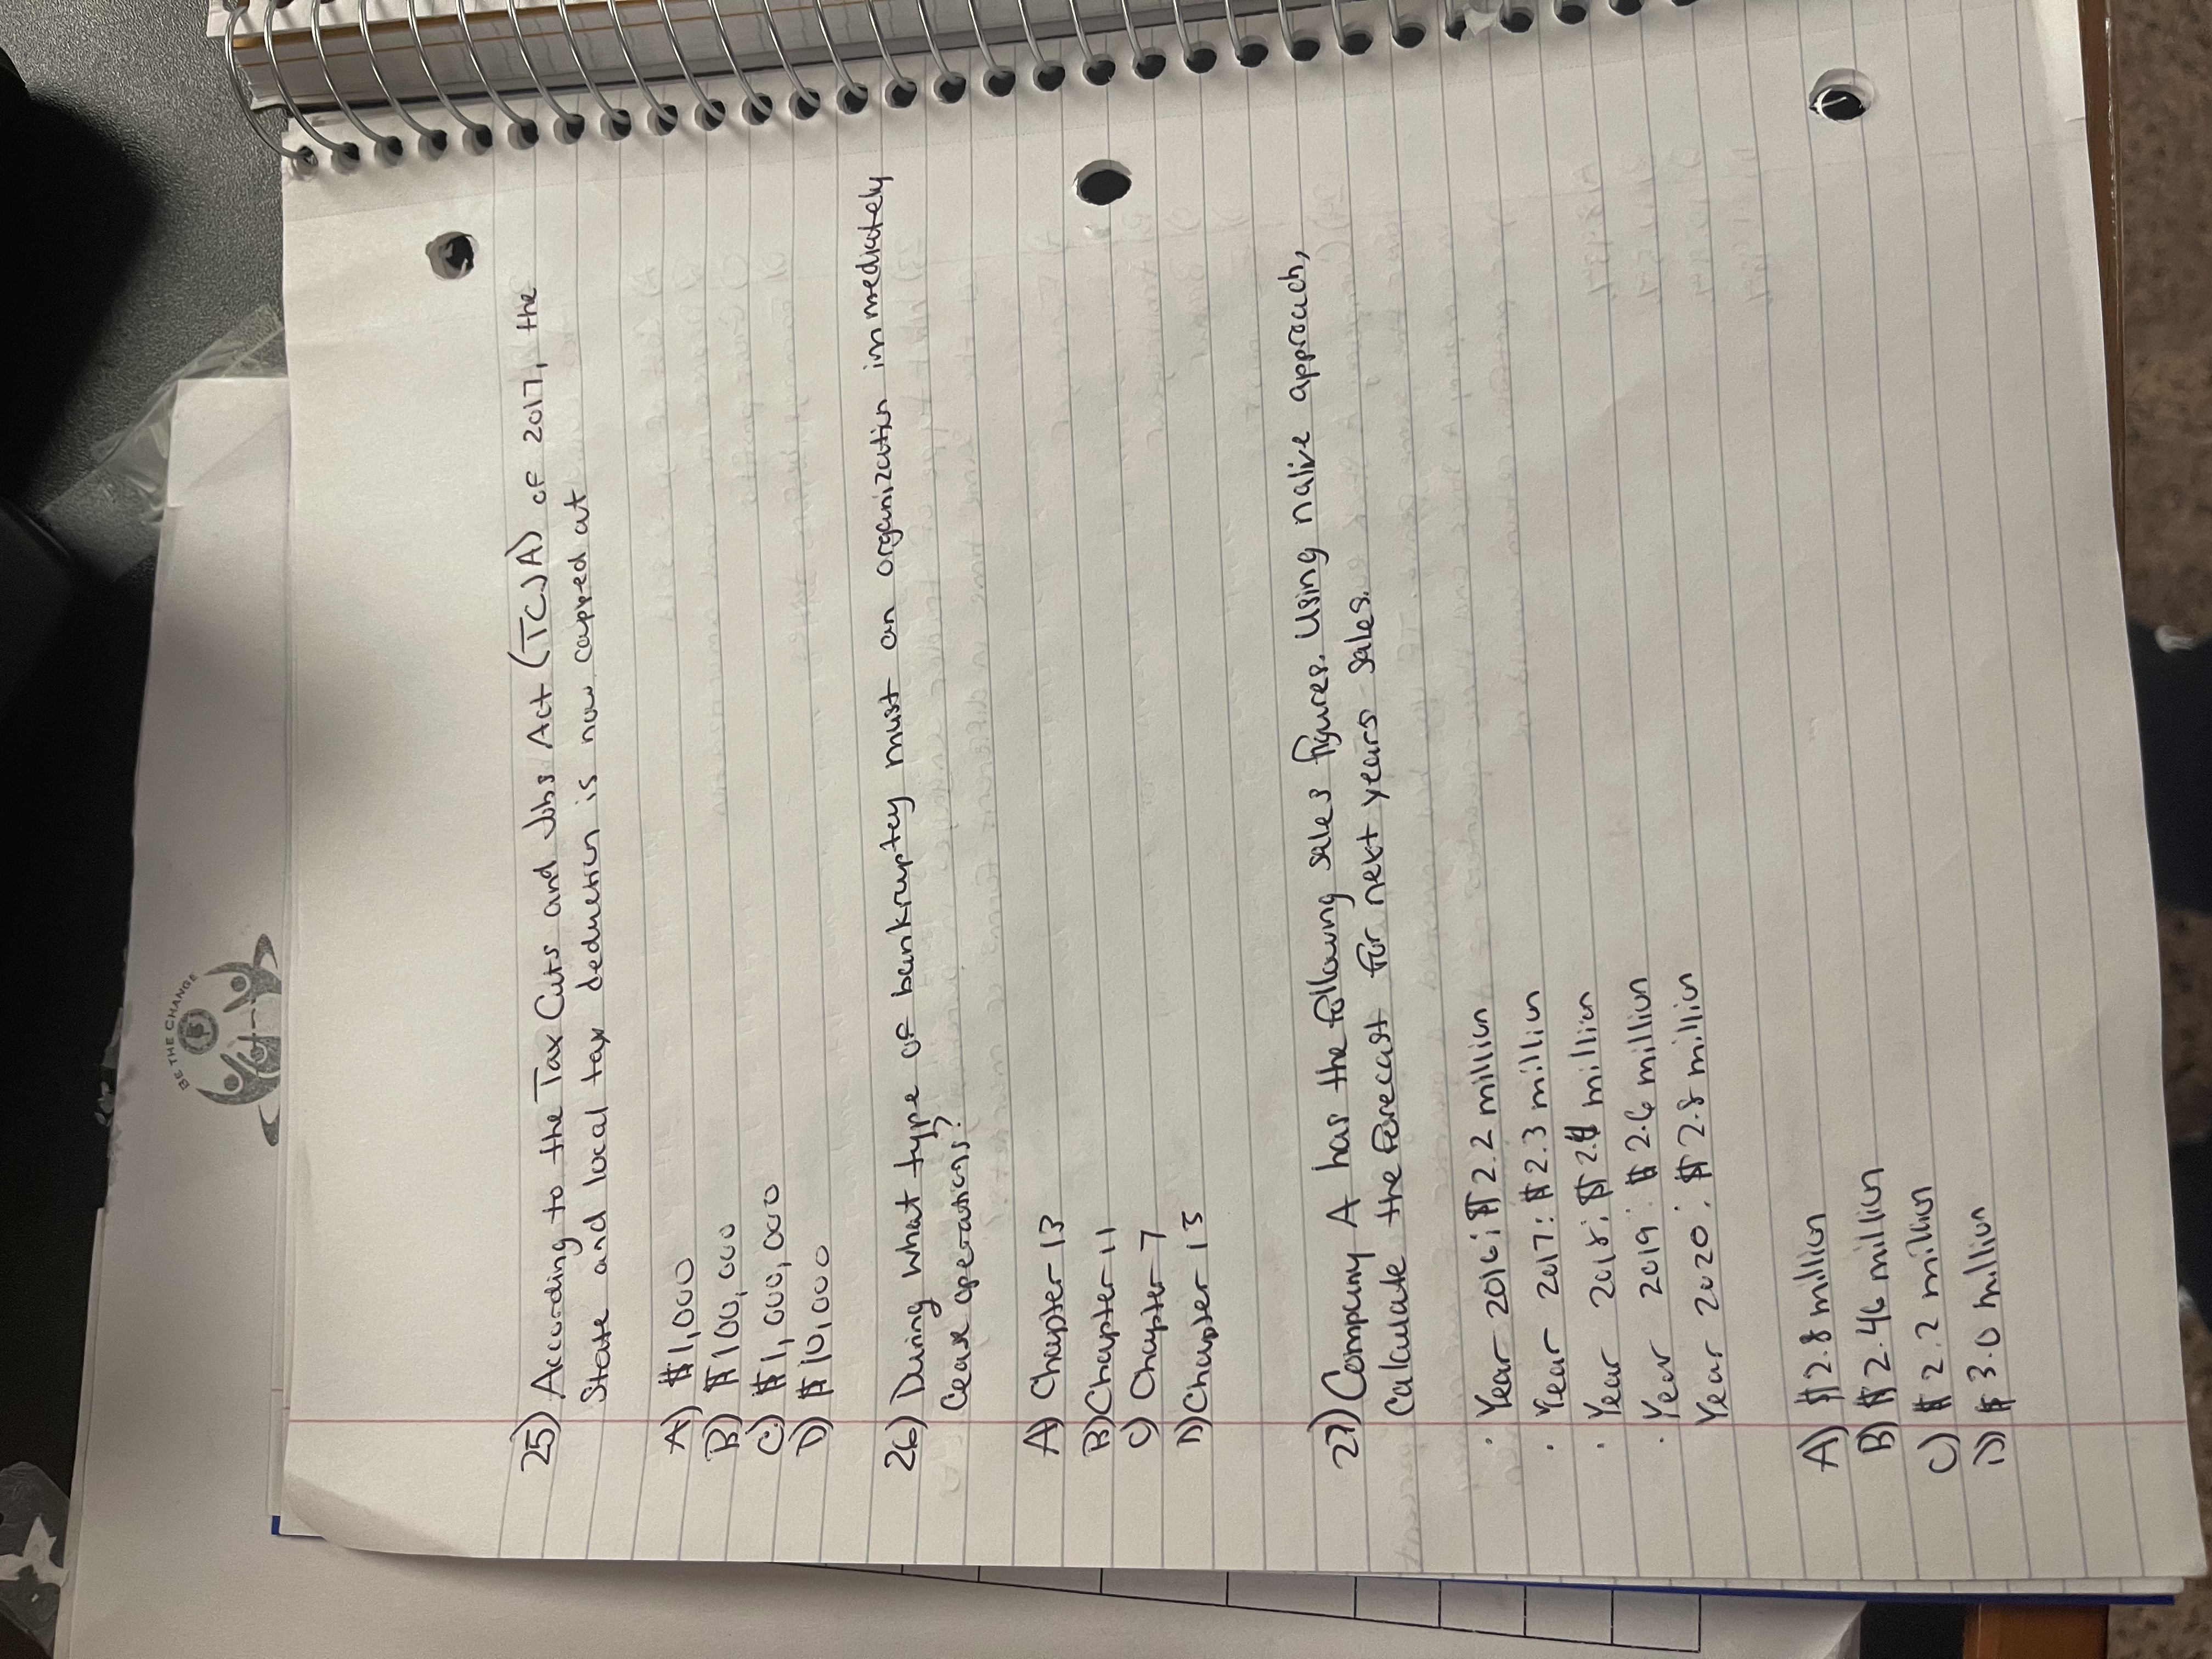 BE THE CHANGE
25) According to the Tax Cuts and Jobs Act (TCJA) of 2017, the
State and local tax deduction is now capped at
A) $1,000
B) $100,000
C) $1,000,000
D) $10,000
26) During what type of bankruptcy must an organization immediately
Cease operations?
A) Chapter 13
B) Chapter 11
C) Chapter 7
D) Chapter 15
27) Company A has the following sales figures. Using naive approach,
Calculate the forecast for next years sales.
· Year 2016: $2.2 million
· Year 2017: $2.3 million
· Year 2018: $2.4 million
· Year 2019: $2.6 million
Year 2020: $2.8 million
A) $2.8 million
B) $2.46 million
C) $2.2 million
D) $3.0 million